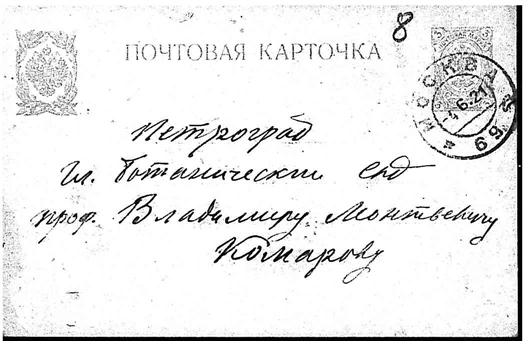 8
ПОЧТОВАЯ КАРТОЧКА
МОСКВА
4.6.21
69
Петроград
Гл. Ботанический Сад
проф. Владимиру Леонтьевичу
Комарову